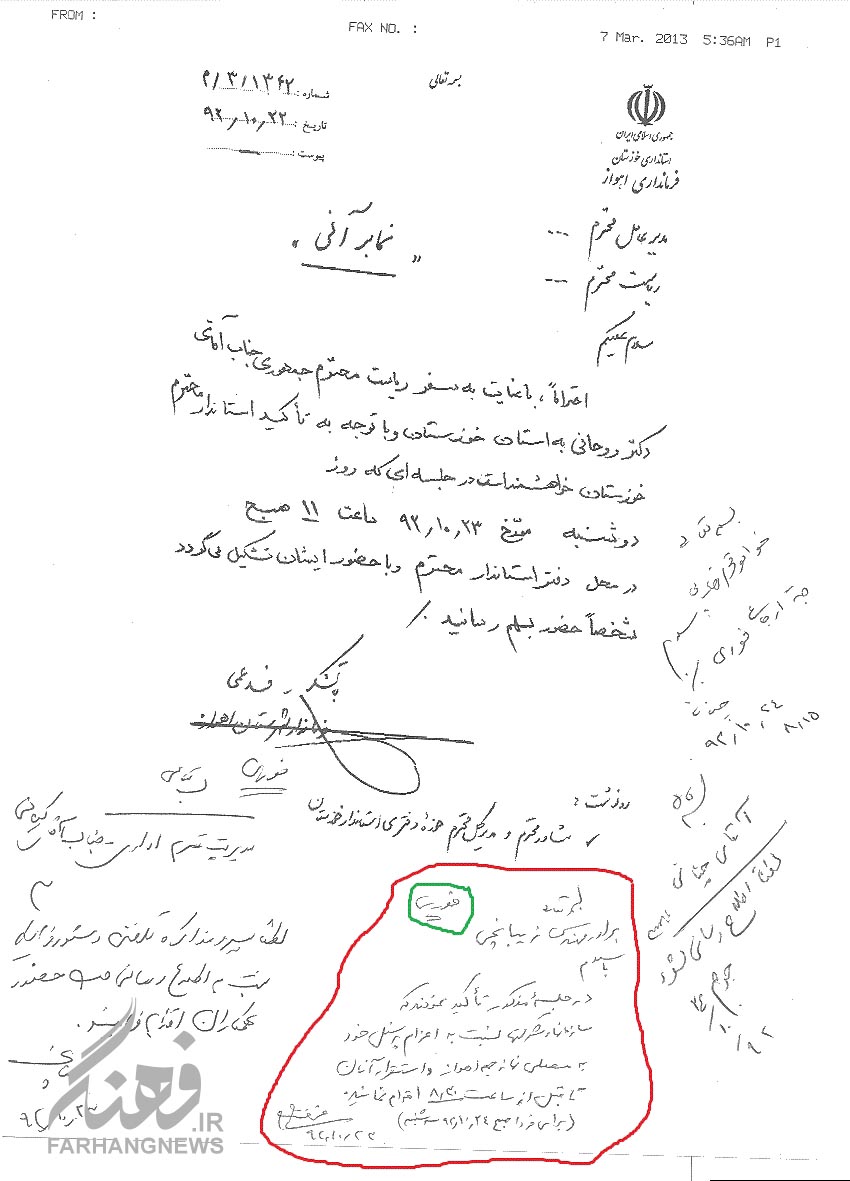 FROM :
FAX NO. :
7 Mar. 2013 5:36AM P1
بسمه تعالی
جمهوری اسلامی ایران
استانداری خوزستان
فرمانداری اهواز
شماره: ۱۳۶۲/۳/م
تاریخ: ۹۲/۱۰/۲۲
پیوست:
مدیر عامل محترم ---
ریاست محترم ---
" نمابر آنی "
سلام علیکم
احتراماً، با عنایت به سفر ریاست محترم جمهوری جناب آقای
دکتر روحانی به استان خوزستان و با توجه به تأکید استاندار محترم
خوزستان خواهشمند است در جلسه ای که روز
دوشنبه مورخ ۹۲/۱۰/۲۳ ساعت ۱۱ صبح
در محل دفتر استاندار محترم و با حضور ایشان تشکیل می گردد
شخصاً حضور بهم رسانید ./
فرماندار شهرستان اهواز
رونوشت :
✓ مشاور محترم و مدیرکل محترم حوزه دفتری استاندار خوزستان
فوری
جهت ارجاع فوری
۹۲/۱۰/۲۴
۸/۱۵
آقای
لطفاً اطلاع رسانی شود
۹۲/۱۰/۲۴
فوری
مدیریت محترم اداری - جناب آقای
لطفاً پیرو مذاکره تلفنی و دستور
نسبت به اطلاع رسانی جهت حضور
همکاران اقدام فرمایید.
۹۲/۱۰/۲۳
فوری
برادر مهندس زیبانچی
با سلام
در جلسه مذکور تأکید نمودند که
سازمانها و شرکتها نسبت به اعزام پرسنل خود
به مصلی نماز جمعه اهواز و استقرار آنان
تا قبل از ساعت ۸/۳۰ اقدام نمایند.
(برای فردا صبح ۹۲/۱۰/۲۴ سه شنبه)
۹۲/۱۰/۲۳
فرهنگ
.IR
FARHANGNEWS